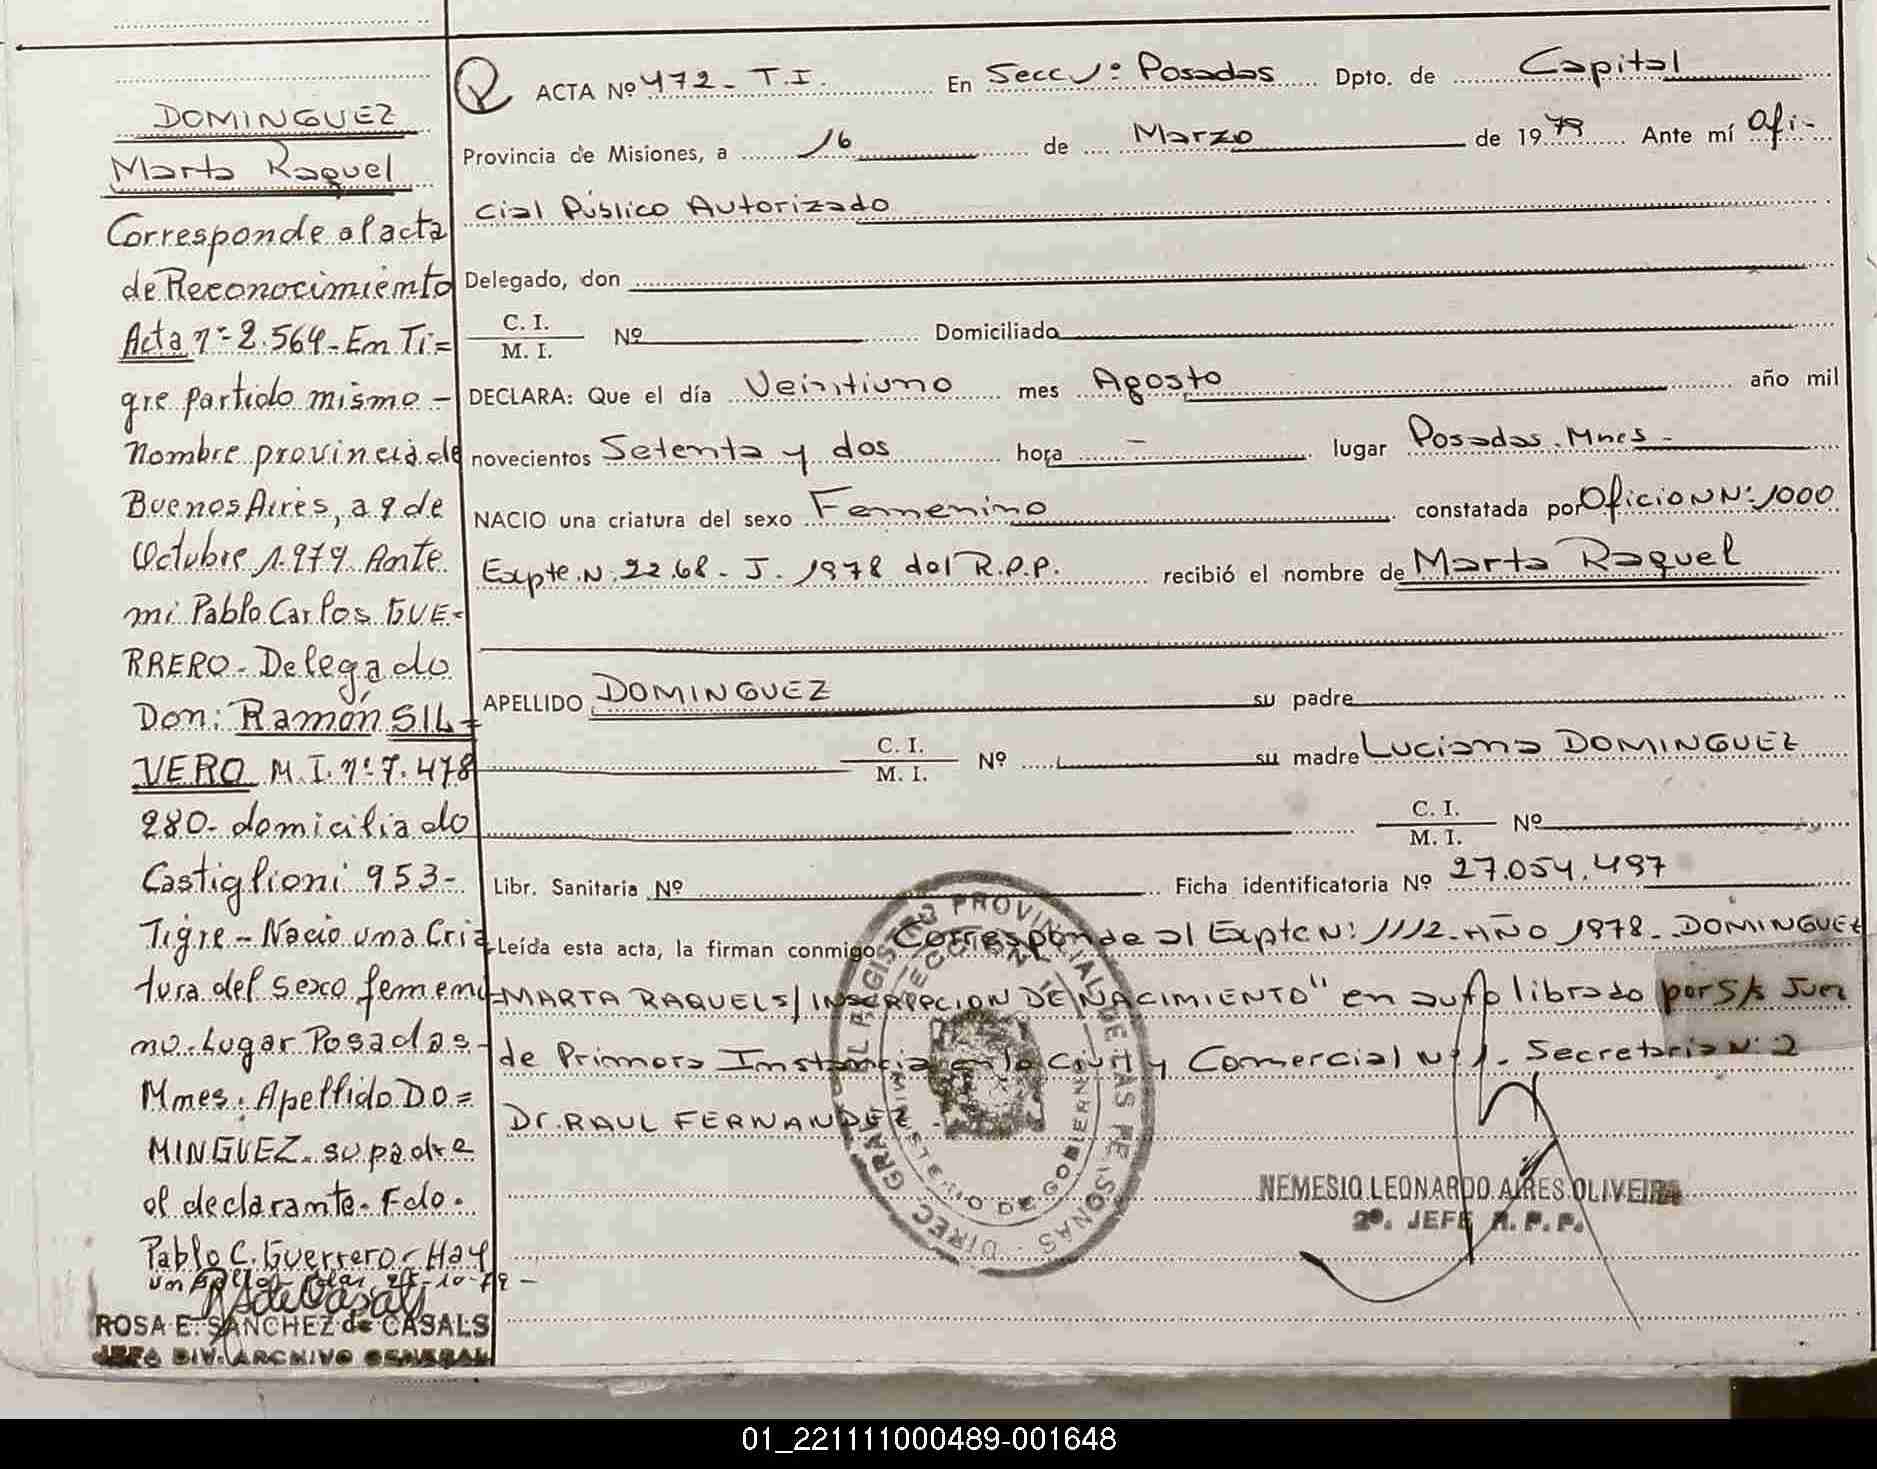 DOMINGUEZ
Marta Raquel
Corresponde al acta
de Reconocimiento
Acta nº 2.564 - En Ti=
gre partido mismo -
nombre provincia de
Buenos Aires, a 9 de
Octubre 1.979. Ante
mi Pablo Carlos GUE-
RRERO - Delegado
Don: Ramón SIL=
VERO M.I. nº 7.478
280 - domiciliado
Castiglioni 953-
Tigre - Nacio una Cria
tura del sexo femeni-
no. Lugar Posadas -
Mnes. Apellido DO=
MINGUEZ. su padre
el declarante. Fdo.
Pablo C. Guerrero - Hay
un sello - 10-79 -
ROSA E. SANCHEZ de CASALS
JEFA DIV. ARCHIVO GENERAL
ACTA Nº 472 - T.I. En Secc 1º Posadas Dpto. de Capital
Provincia de Misiones, a 16 de Marzo de 1979 Ante mí Ofi-
cial Público Autorizado
Delegado, don
C. I.
M. I. Nº Domiciliado
DECLARA: Que el día Veintiuno mes Agosto año mil
novecientos Setenta y dos hora - lugar Posadas. Mnes -
NACIO una criatura del sexo Femenino constatada por Oficio N Nº 1000
Expte. N. 2268 - J. 1978 del R.P.P. recibió el nombre de Marta Raquel
APELLIDO DOMINGUEZ su padre
C. I.
M. I. Nº su madre Luciana DOMINGUEZ
C. I.
M. I. Nº
Libr. Sanitaria Nº Ficha identificatoria Nº 27.054.497
Leída esta acta, la firman conmigo Corresponde al Expte Nº 1112 - AÑO 1978 - DOMINGUEZ
MARTA RAQUEL S/ INSCRIPCION DE NACIMIENTO" en auto librado por S/s Juez
de Primera Instancia en lo Civil y Comercial Nº 1. Secretaria Nº 2
Dr. RAUL FERNANDEZ.
DIREC. GRAL. DEL REGISTRO PROVINCIAL DE LAS PERSONAS
NEMESIO LEONARDO AIRES OLIVEIRA
2º. JEFE R. P. P.
01_221111000489-001648